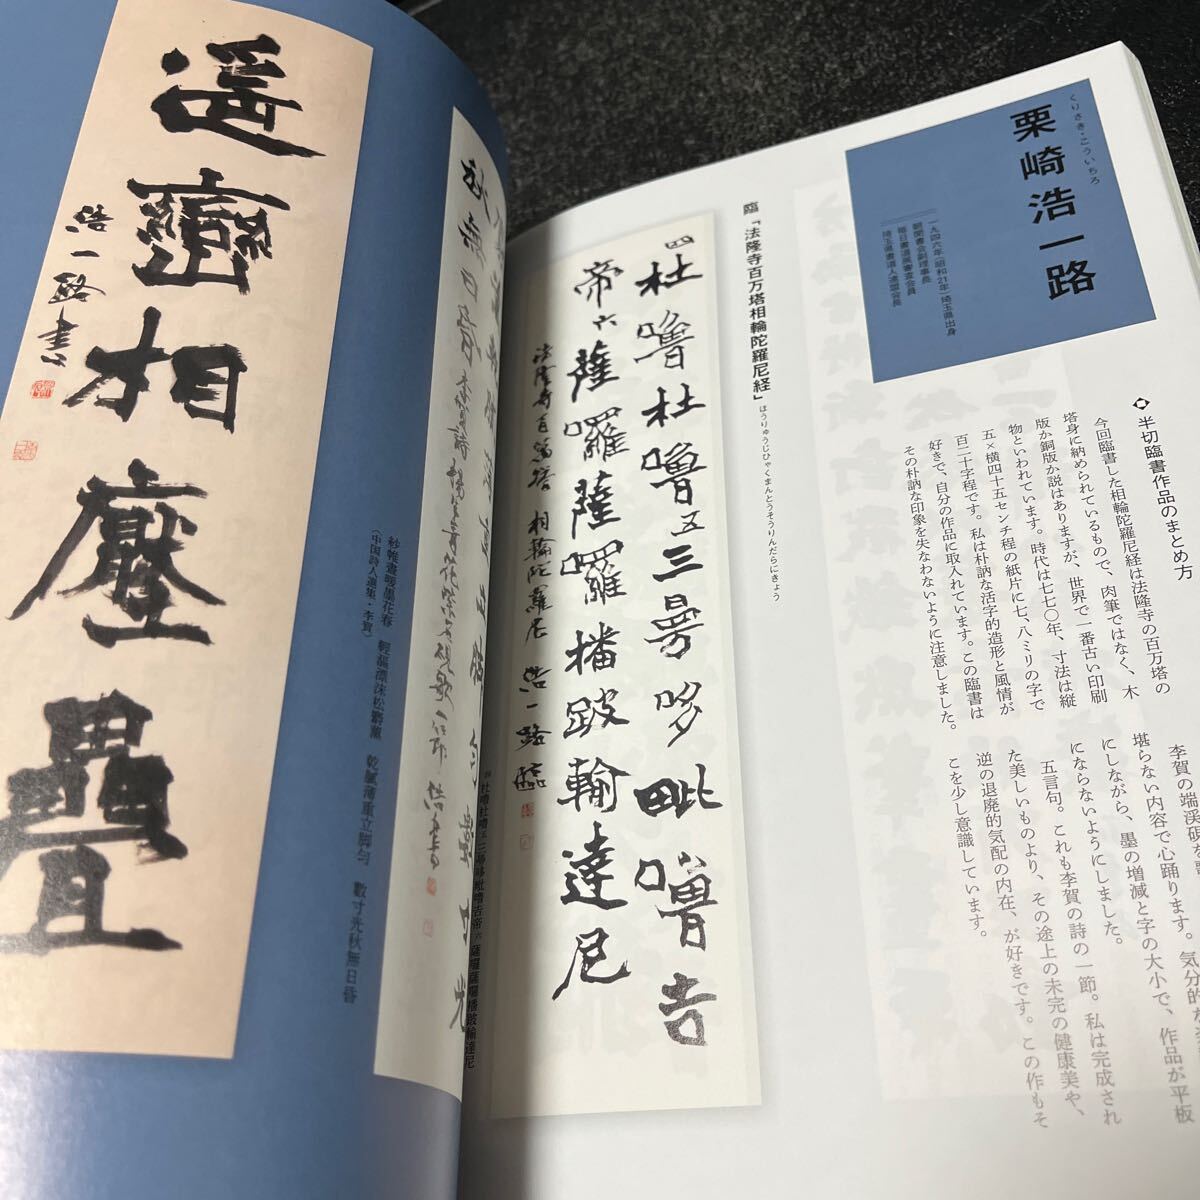 くりさき・こういちろ
栗崎浩一路
一九四六年(昭和21年)埼玉県出身
毎日書道展審査会員
埼玉県書道人連盟会長
◆半切臨書作品のまとめ方
今回臨書した相輪陀羅尼経は法隆寺の百万塔の
塔身に納められているもので、肉筆ではなく、木
版か銅版か説はありますが、世界で一番古い印刷
物といわれています。時代は七七〇年、寸法は縦
五×横四十五センチ程の紙片に七、八ミリの字で
百二十字程です。私は朴訥な活字的造形と風情が
好きで、自分の作品に取入れています。この臨書は
その朴訥な印象を失なわないように注意しました。
李賀の端渓硯を
堪らない内容で心踊ります。気分的な
にしながら、墨の増減と字の大小で、作品が平板
にならないようにしました。
五言句。これも李賀の詩の一節。私は完成され
た美しいものより、その途上の未完の健康美や、
逆の退廃的気配の内在、が好きです。この作もそ
こを少し意識しています。
臨「法隆寺百万塔相輪陀羅尼経」
ほうりゅうじひゃくまんとうそうりんだらにきょう
四杜嚕杜嚕五三曼哆毗嚕吉
帝六薩囉薩囉播跛輸達尼
法隆寺百萬塔 相輪陀羅尼 浩一路臨
杜嚕杜嚕五三曼哆毗嚕吉帝六 薩囉薩囉播跛輸達尼
秋無日昏 李賀詩 楊生青花紫石硯歌一節 浩書
紗帷晝暖墨花春 輕漚漂沫松麝薫 乾膩薄重立脚勻 數寸光秋無日昏
(中国詩人選集・李賀)
遥巒相壓疊
浩一路書